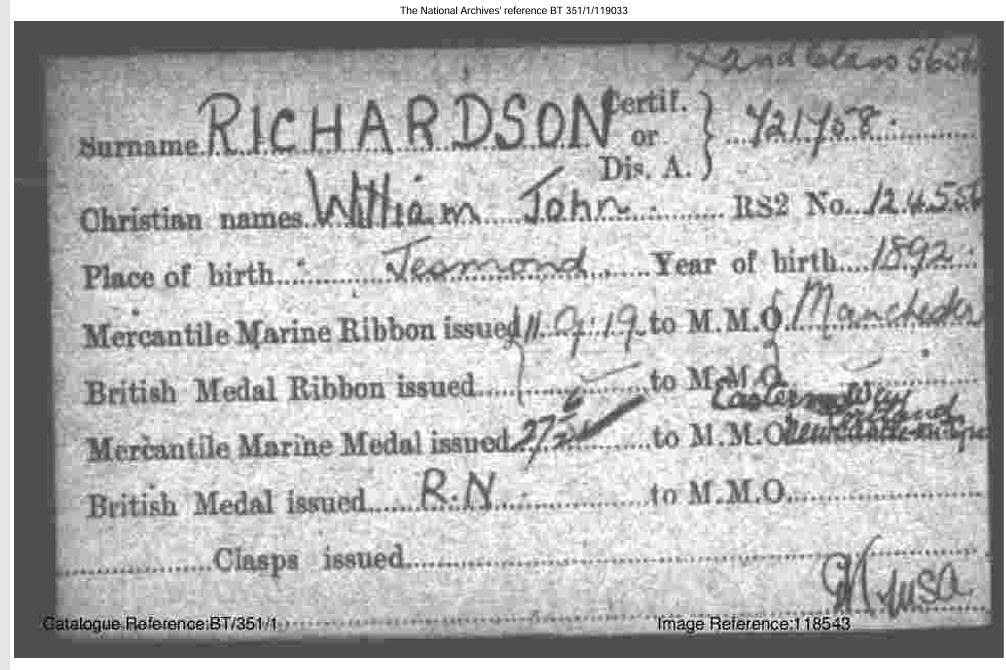 The National Archives' reference BT 351/1/119033
and Class
Surname RICHARDSON Certif. or Dis. A. } 721708
Christian names William John RS2 No. 124556
Place of birth Jesmond Year of birth 1892
Mercantile Marine Ribbon issued 11.9.19 to M.M.O. Manchester
British Medal Ribbon issued to M.M.O.
Eastern Way
Mercantile Marine Medal issued to M.M.O.
British Medal issued R.N. to M.M.O.
Clasps issued
Catalogue Reference:BT/351/1 Image Reference:118543